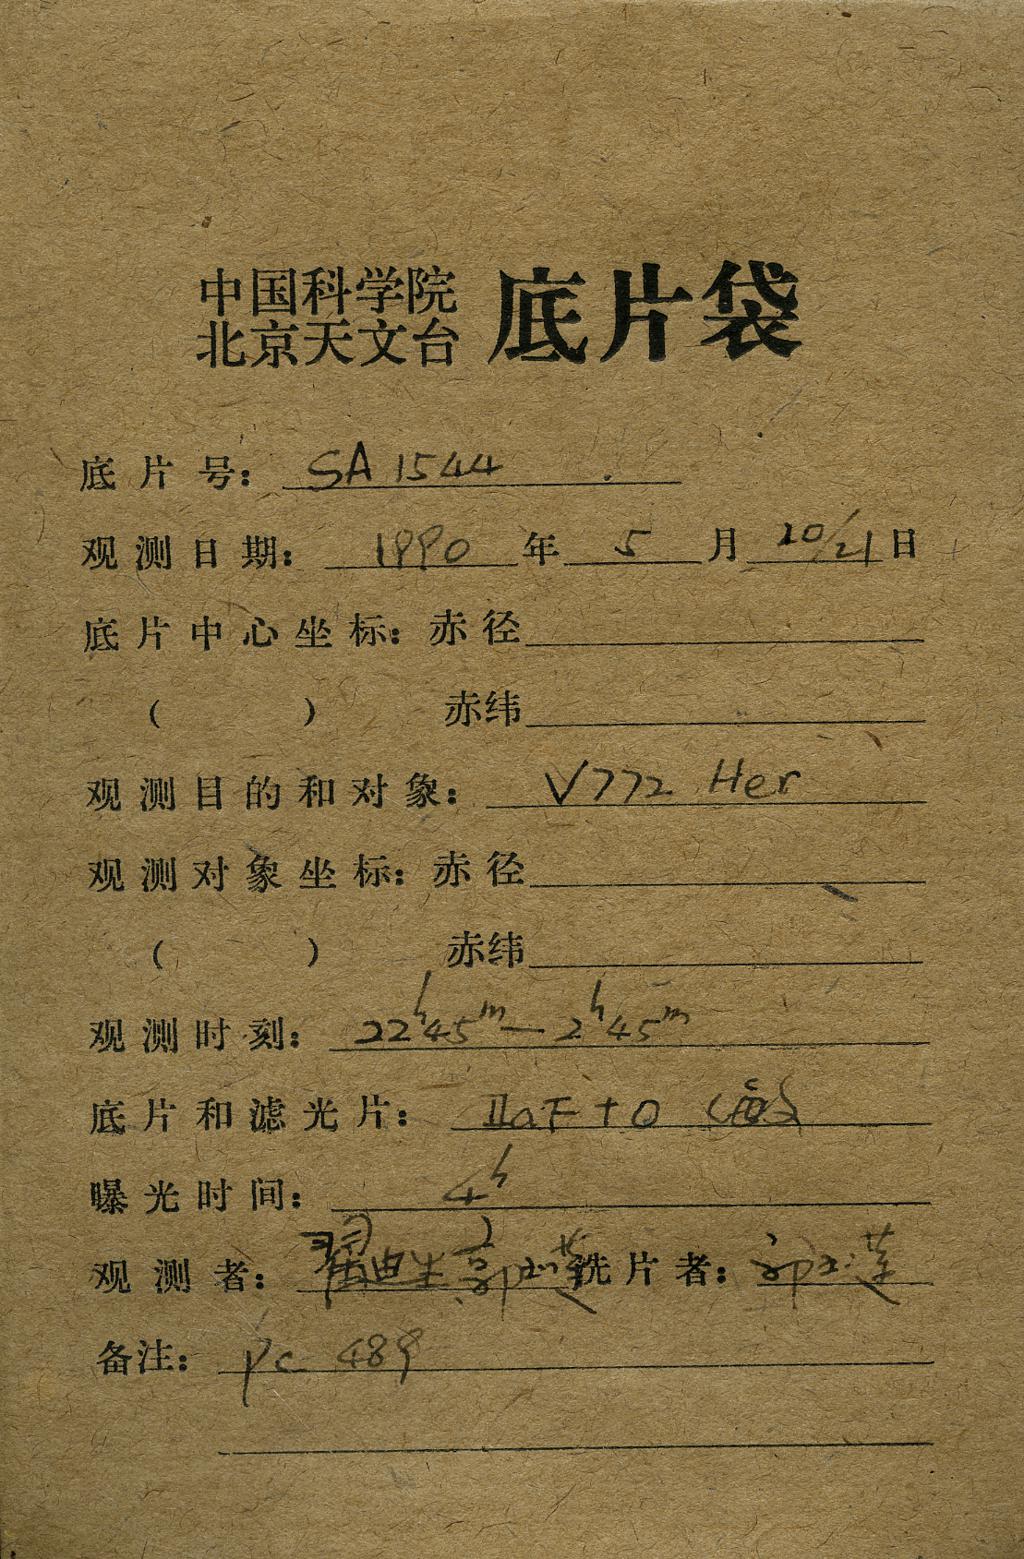 中国科学院
北京天文台 底片袋
底片号: SA1544
观测日期: 1990年 5 月 20/21日
底片中心坐标: 赤径
( ) 赤纬
观测目的和对象: V772 Her
观测对象坐标: 赤径
( ) 赤纬
观测时刻: 22ʰ45ᵐ—2ʰ45ᵐ
底片和滤光片: IIaF+O
曝光时间: 4ʰ
观测者: 翟迪生 郭 洗片者: 郭
备注: pc 489